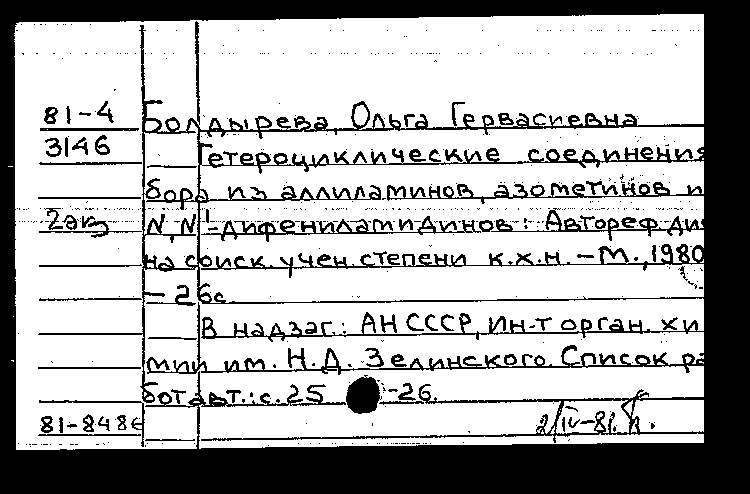 81-4 Болдырева, Ольга Гервасиевна
3146 Гетероциклические соединения
бора из аллиламинов, азометинов и
2экз N,N'-дифениламидинов: Автореф. ди
на соиск. учен. степени к.х.н. - М., 1980
- 26с.
В надзаг.: АН СССР, Ин-т орган. хи
мии им. Н.Д. Зелинского. Список ра
бот авт.: с. 25-26.
81-8486 2/IV-81.